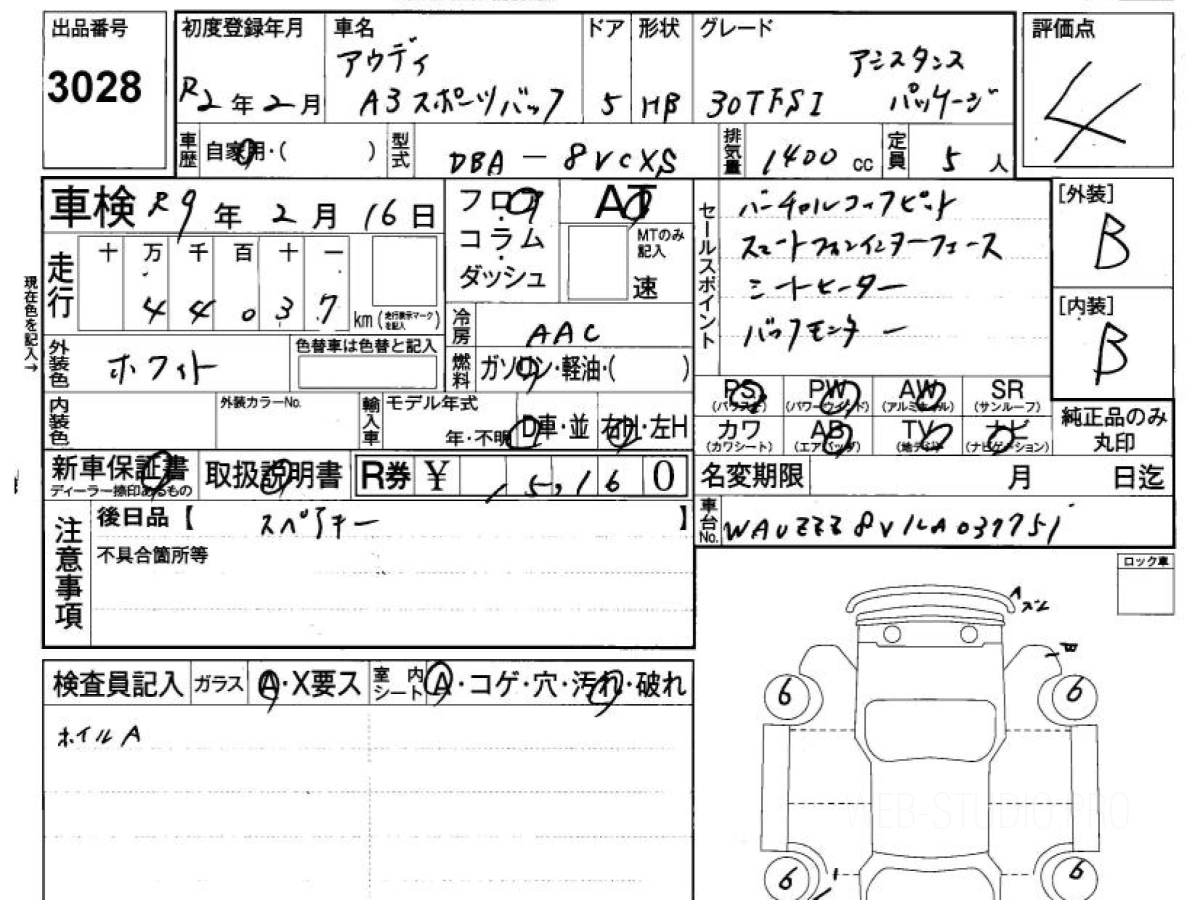 出品番号
3028
初度登録年月
R2年2月
車名
アウディ
A3スポーツバック
ドア
5
形状
HB
グレード
30TFSI
アシスタンス
パッケージ
評価点
4
車歴
自家用・( )
型式
DBA-8VCXS
排気量
1400cc
定員
5人
車検 R9年2月16日
フロア
コラム
ダッシュ
AT
MTのみ
記入
速
セールスポイント
バーチャルコックピット
スマートフォンインターフェース
シートヒーター
バックモニター
[外装]
B
[内装]
B
現在色を記入→
走行
十万千百十一
44037
km(走行表示マークを記入)
冷房
AAC
外装色
ホワイト
色替車は色替と記入
燃料
ガソリン・軽油・( )
PS
(パワステ)
PW
(パワーウインド)
AW
(アルミホイル)
SR
(サンルーフ)
カワ
(カワシート)
AB
(エアバッグ)
TV
(地デジ)
ナビ
(ナビゲーション)
純正品のみ
丸印
内装色
外装カラーNo.
輸入車
モデル年式
年・不明
D車・並
右H・左H
新車保証書
ディーラー捺印あるもの
取扱説明書
R券 ¥ 15,160
名変期限 月 日迄
注意事項
後日品【 スペアキー 】
不具合箇所等
車台No.
WAUZZZ8V1LA037751
ロック車
A
ズレ
W
6
6
6
6
検査員記入
ガラス
A・X要ス
室内シート
A・コゲ・穴・汚れ・破れ
ホイルA
WEB-STUDIO.PRO